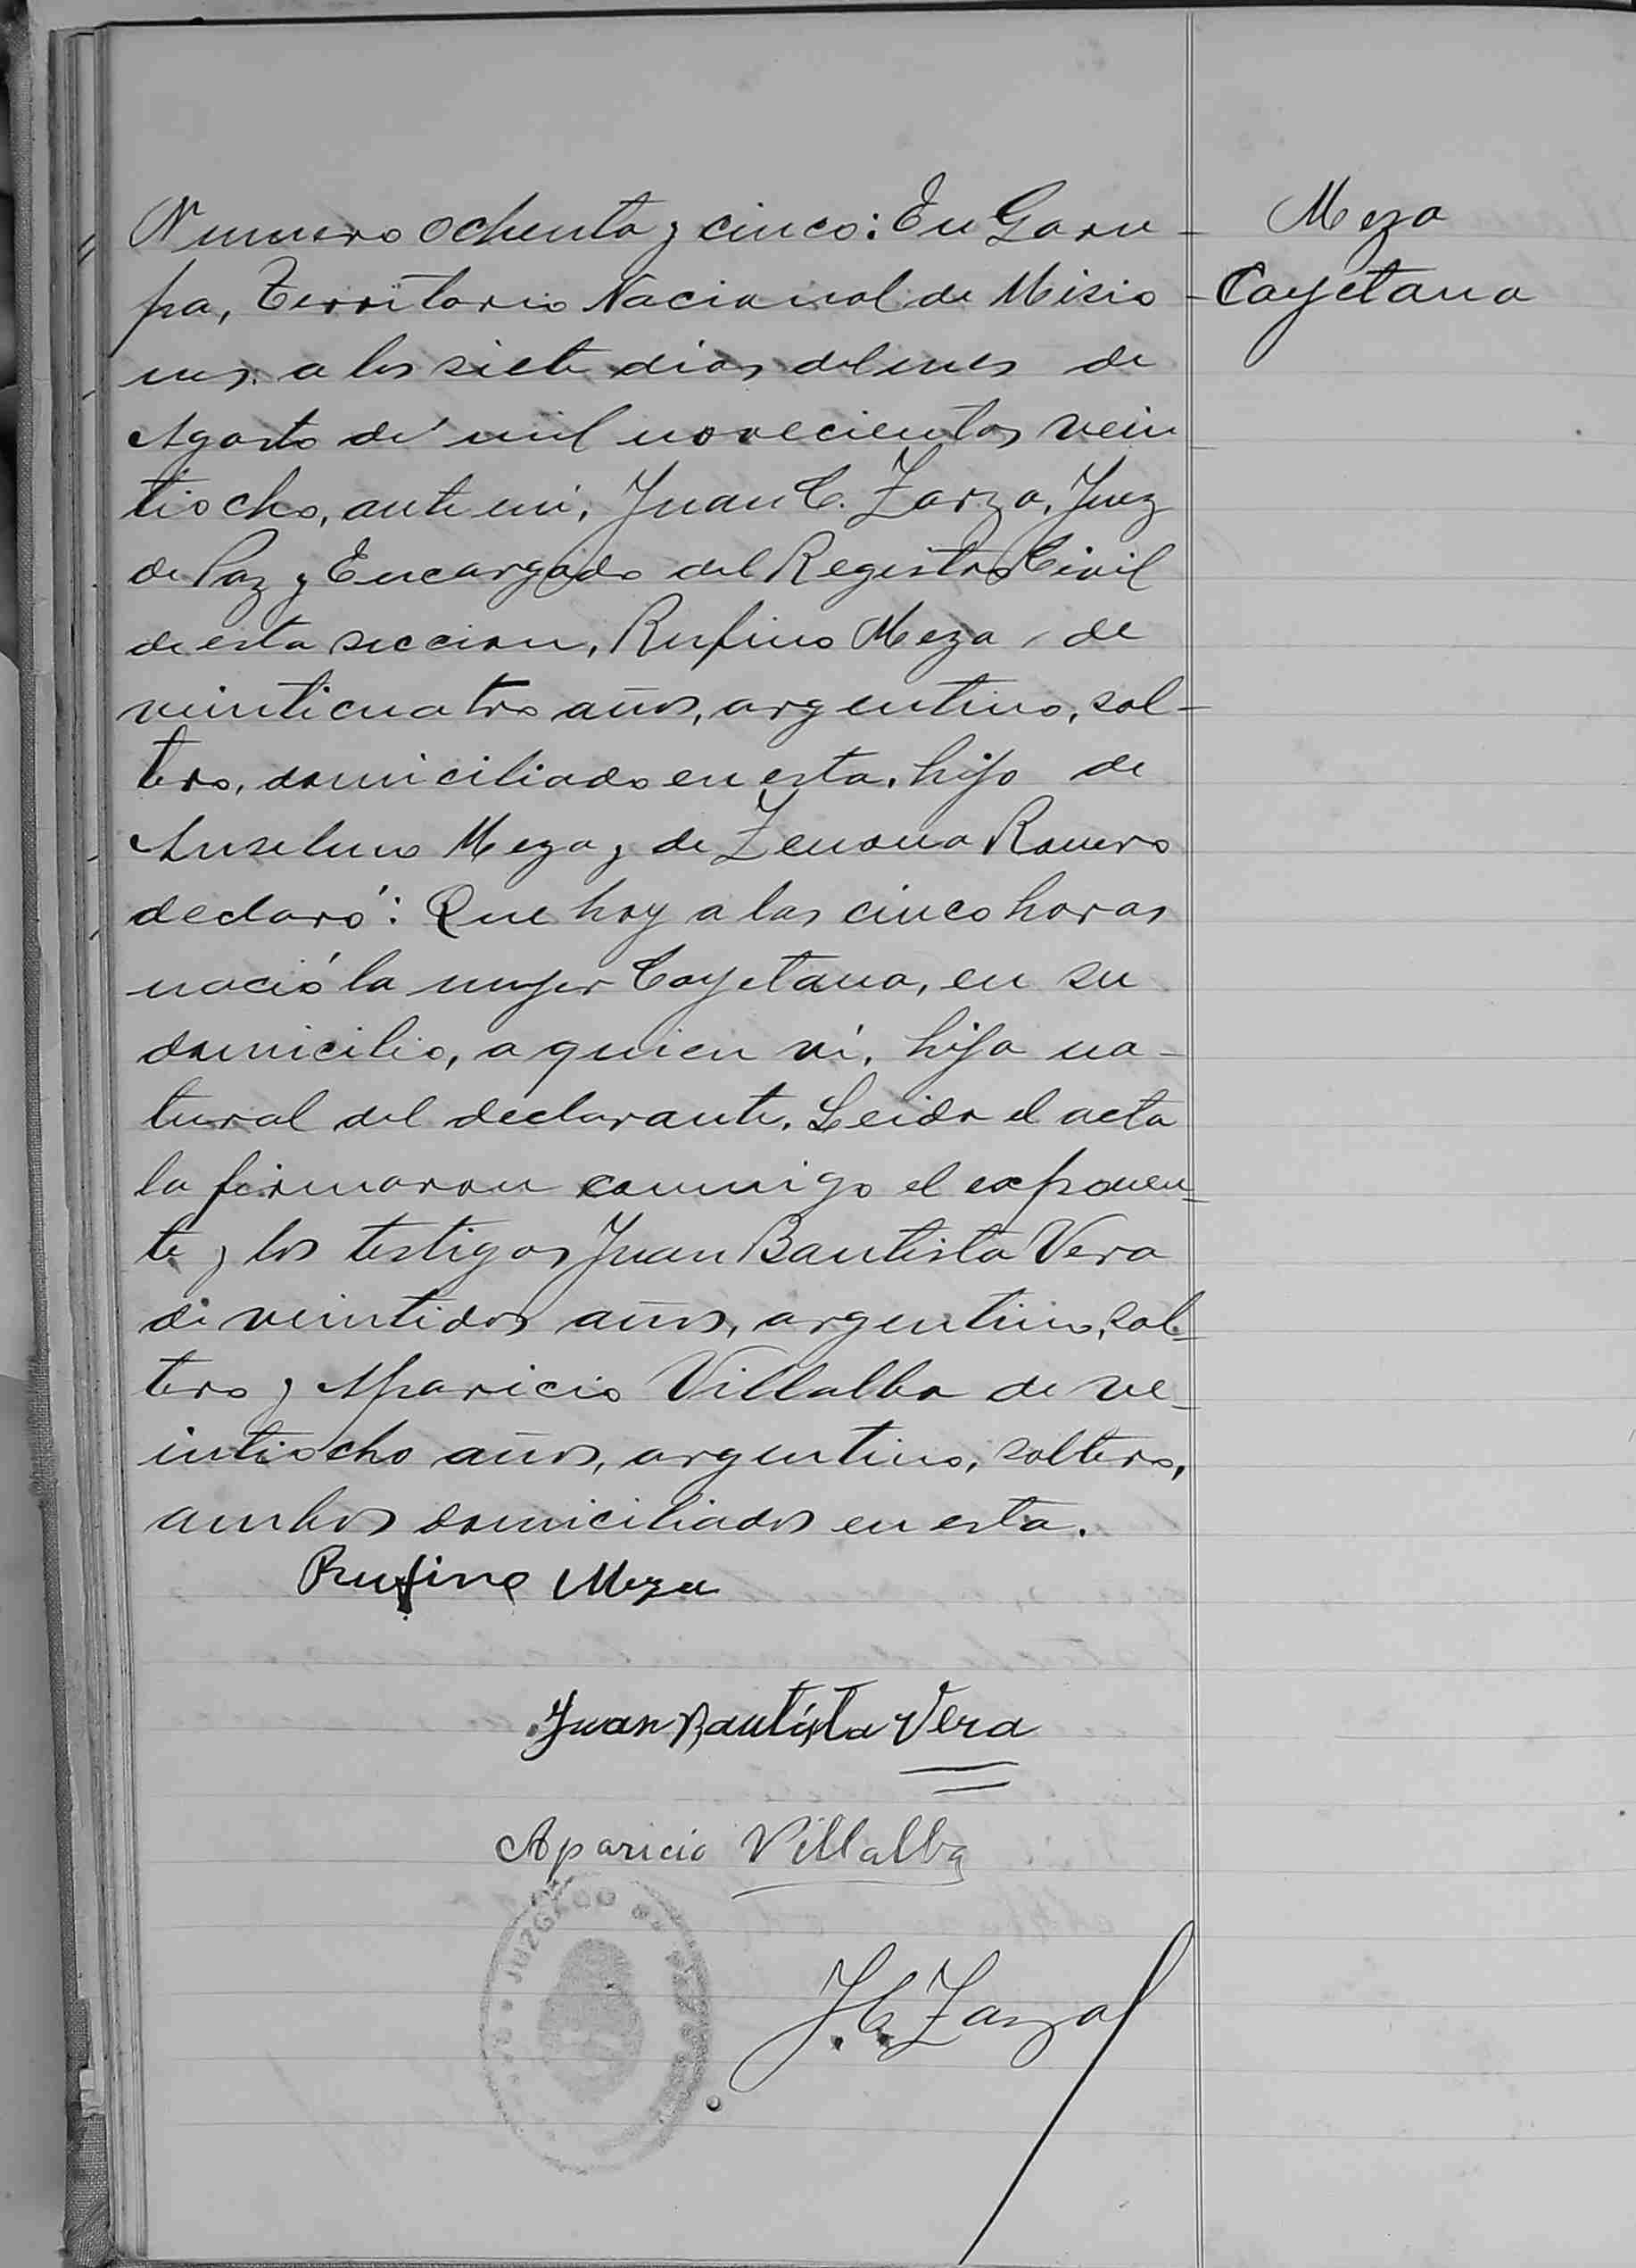 Numero ochenta y cinco: En Garu-
Meza
pa, Territorio Nacional de Misio-
Cayetana
nes. a los siete dias del mes de
Agosto de mil novecientos vein
tiocho, ante mi, Juan C. Zarza, Juez
de Paz y Encargado del Registro Civil
de esta seccion, Rufino Meza, de
veinticuatro años, argentino, sol-
tero, domiciliado en esta, hijo de
Anselmo Meza y de Zenona Romero
declaró: Que hoy a las cinco horas
nació la mujer Cayetana, en su
domicilio, a quien ví, hija na-
tural del declarante. Leida el acta
la firmaron conmigo el exponen-
te y los testigos Juan Bautista Vera
de veintidos años, argentino, sol-
tero y Aparicio Villalba de ve-
intiocho años, argentino, soltero,
ambos domiciliados en esta.
Rufino Meza
Juan Bautista Vera
Aparicio Villalba
JUZGADO
J. C. Zarza